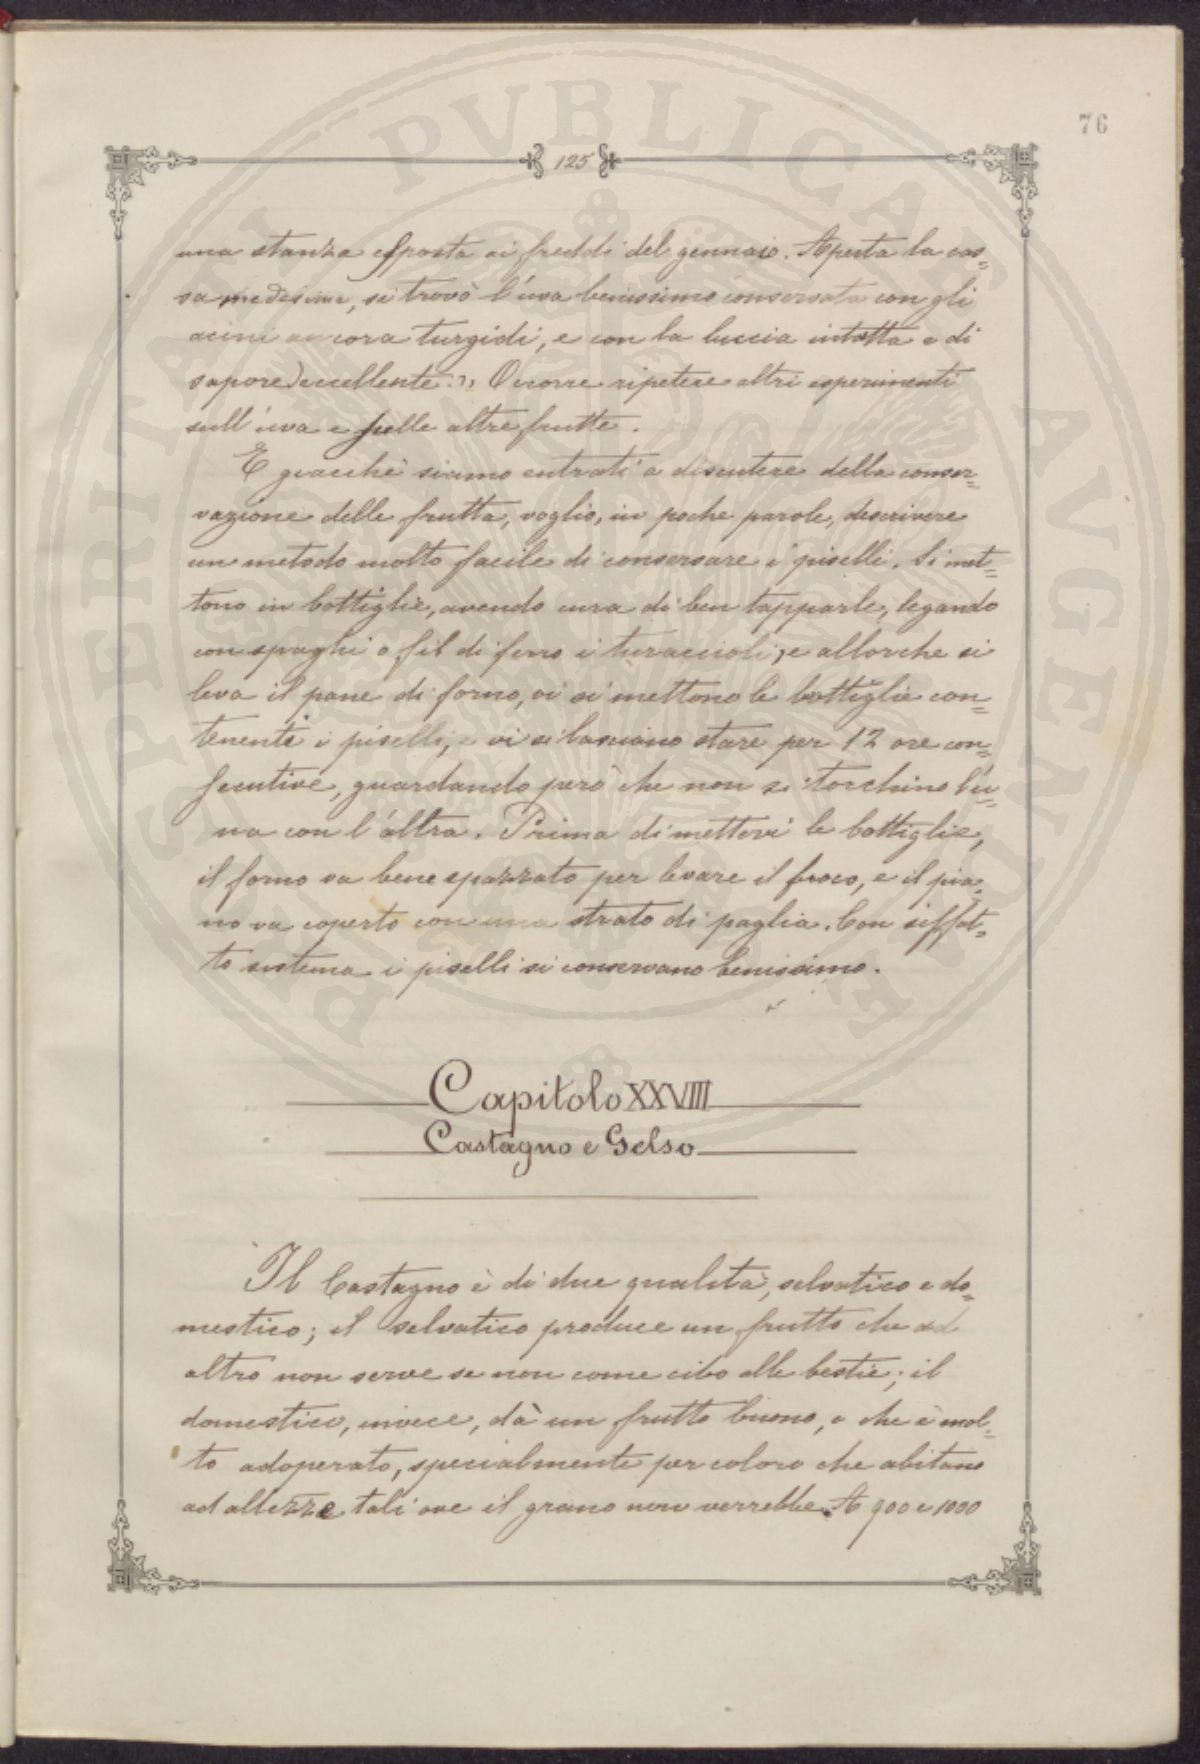 76
125
una stanza esposta ai freddi del gennaio. Aperta la cas=
sa medesima, si trovò l'uva benissimo conservata con gli
acini ancora turgidi, e con la buccia intatta e di
sapore eccellente.» Occorre ripetere altri esperimenti
sull'uva e sulle altre frutte.
E giacchè siamo entrati a discutere della conser=
vazione delle frutta, voglio, in poche parole, descrivere
un metodo molto facile di conservare i piselli. Si met=
tono in bottiglie, avendo cura di ben tapparle, legando
con spaghi o fil di ferro i turaccioli; e allorchè si
leva il pane di forno, vi si mettono le bottiglie con=
tenenti i piselli, e vi si lasciano stare per 12 ore con=
secutive, guardando però che non si torchino l'u=
na con l'altra. Prima di mettervi le bottiglie,
il forno va bene spazzato per levare il fuoco, e il pia=
no va coperto con uno strato di paglia. Con siffat=
to sistema i piselli si conservano benissimo.
Capitolo XXVIII
Castagno e Gelso
Il Castagno è di due qualità, selvatico e do=
mestico; il selvatico produce un frutto che ad
altro non serve se non come cibo alle bestie; il
domestico, invece, dà un frutto buono, e che è mol=
to adoperato, specialmente per coloro che abitano
ad altezze tali ove il grano non verrebbe. A 900 e 1000